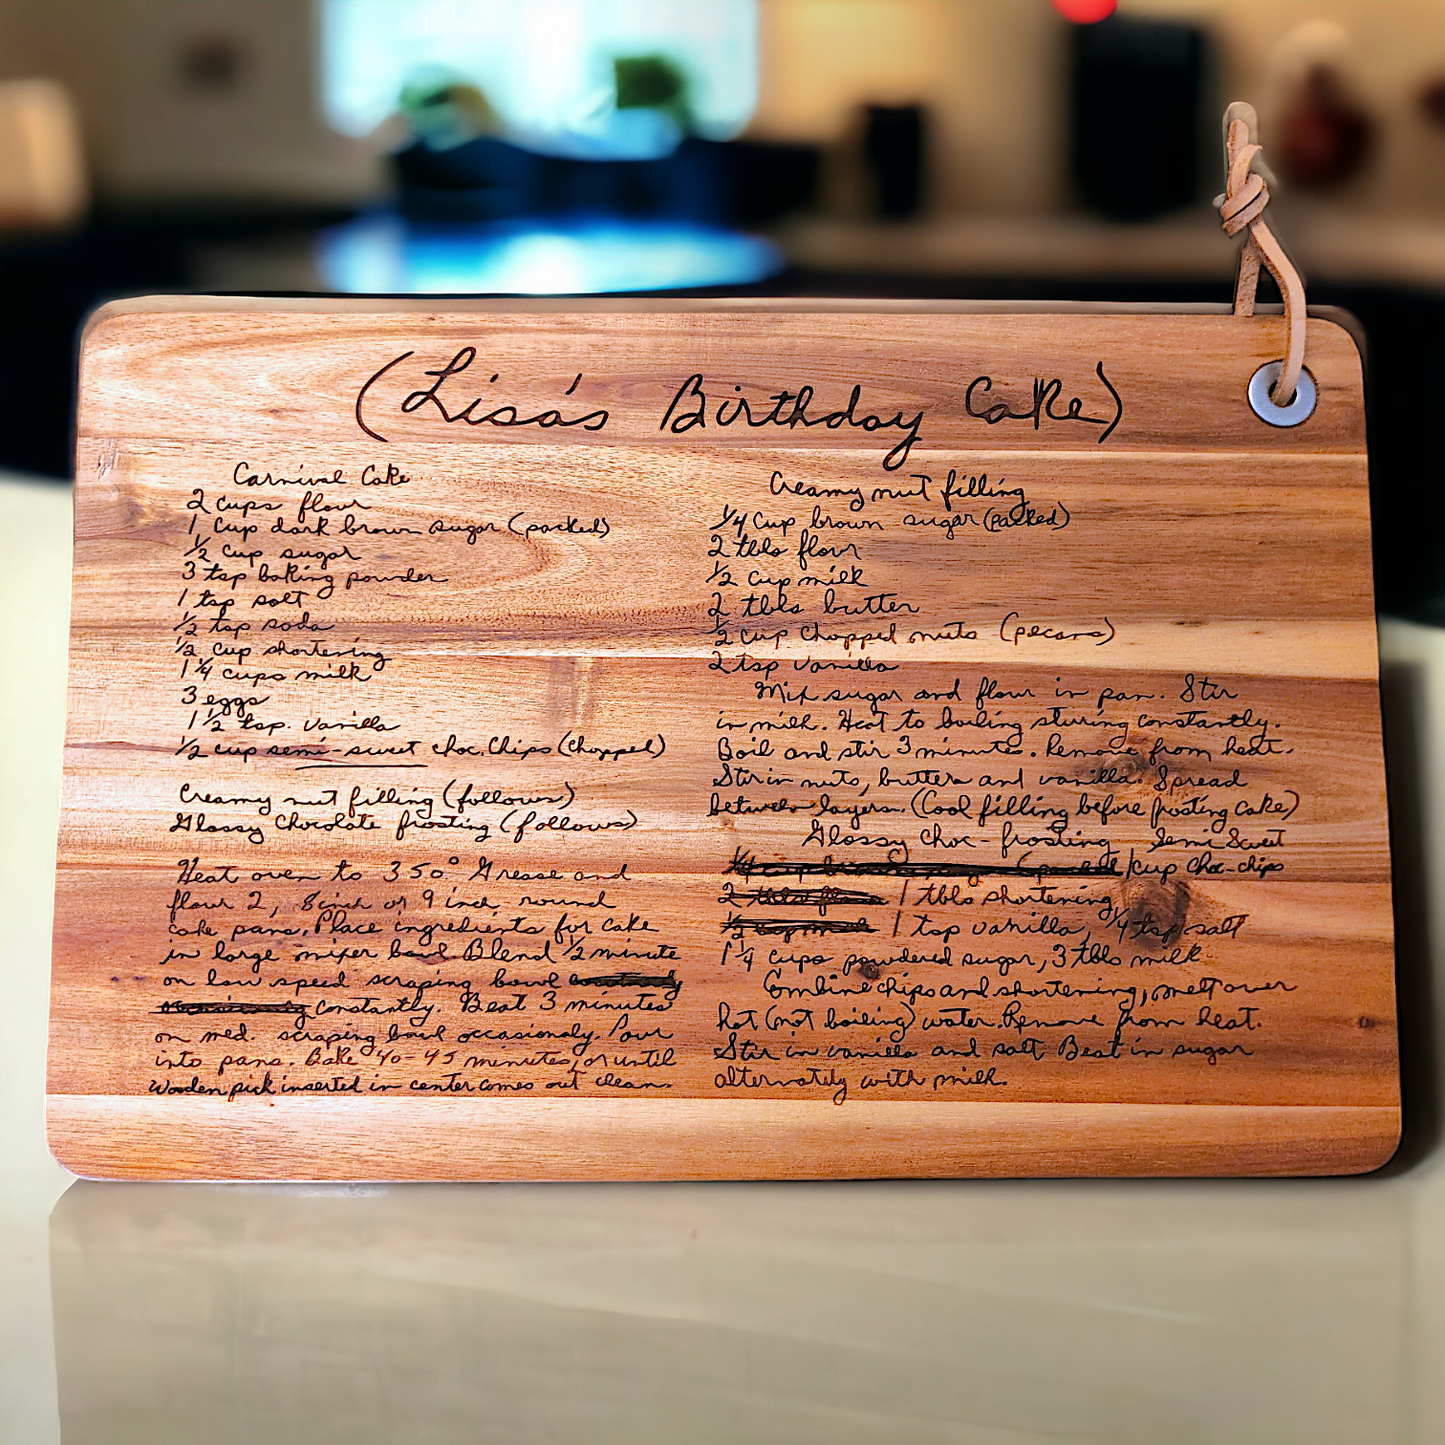 (Lisa's Birthday Cake)
Carnival Cake
2 cups flour
1 cup dark brown sugar (packed)
1/2 cup sugar
3 tsp baking powder
1 tsp salt
1/2 tsp soda
1/2 cup shortening
1 1/4 cups milk
3 eggs
1 1/2 tsp. vanilla
1/2 cup semi-sweet choc. chips (chopped)
Creamy nut filling (follows)
Glossy chocolate frosting (follows)
Heat oven to 350° Grease and
flour 2, 8 inch or 9 inch round
cake pans. Place ingredients for cake
in large mixer bowl. Blend 1/2 minute
on low speed scraping bowl
constantly. Beat 3 minutes
on med. scraping bowl occasionaly. Pour
into pans. Bake 40-45 minutes, or until
wooden pick inserted in center comes out clean.
Creamy nut filling
1/4 cup brown sugar (packed)
2 tbls flour
1/2 cup milk
2 tbls butter
1/2 cup chopped nuts (pecans)
2 tsp vanilla
Mix sugar and flour in pan. Stir
in milk. Heat to boiling stirring constantly.
Boil and stir 3 minutes. Remove from heat.
Stir in nuts, butter and vanilla. Spread
between layers. (Cool filling before frosting cake)
Glossy choc-frosting Semi Sweet
1/4 cup brown sugar (packed) 1 cup choc-chips
2 tbls flour 1 tbls shortening
1/2 cup milk 1 tsp vanilla, 1/4 tsp salt
1 1/4 cups powdered sugar, 3 tbls milk
Combine chips and shortening, melt over
hot (not boiling) water. Remove from heat.
Stir in vanilla and salt Beat in sugar
alternately with milk.